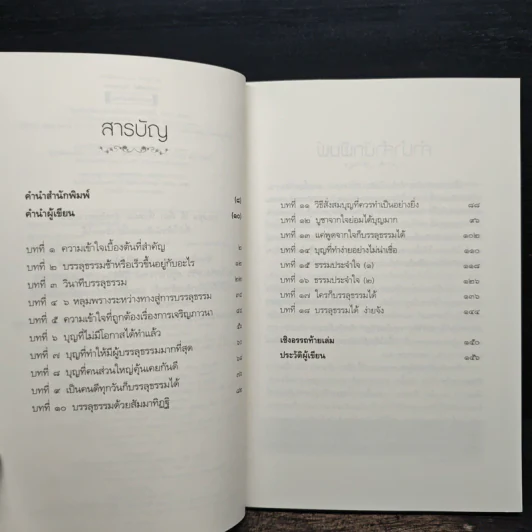 สารบัญ
คำนำสำนักพิมพ์ [๘]
คำนำผู้เขียน [๑๐]
บทที่ ๑ ความเข้าใจเบื้องต้นที่สำคัญ ๒
บทที่ ๒ บรรลุธรรมช้าหรือเร็วขึ้นอยู่กับอะไร
บทที่ ๓ วินาทีบรรลุธรรม
บทที่ ๔ ๖ หลุมพรางระหว่างทางสู่การบรรลุธรรม
บทที่ ๕ ความเข้าใจที่ถูกต้องเรื่องการเจริญภาวนา
บทที่ ๖ บุญที่ไม่มีโอกาสได้ทำแล้ว
บทที่ ๗ บุญที่ทำให้มีผู้บรรลุธรรมมากที่สุด
บทที่ ๘ บุญที่คนส่วนใหญ่คุ้นเคยกันดี
บทที่ ๙ เป็นคนดีทุกวันก็บรรลุธรรมได้
บทที่ ๑๐ บรรลุธรรมด้วยสัมมาทิฏฐิ
บทที่ ๑๑ วิธีสั่งสมบุญที่ควรทำเป็นอย่างยิ่ง ๘๘
บทที่ ๑๒ บูชาจากใจย่อมได้บุญมาก ๙๖
บทที่ ๑๓ แค่พูดจากใจก็บรรลุธรรมได้ ๑๐๒
บทที่ ๑๔ บุญที่ทำง่ายอย่างไม่น่าเชื่อ ๑๑๐
บทที่ ๑๕ ธรรมประจำใจ (๑) ๑๑๘
บทที่ ๑๖ ธรรมประจำใจ (๒) ๑๒๖
บทที่ ๑๗ ใครก็บรรลุธรรมได้ ๑๓๖
บทที่ ๑๘ บรรลุธรรมได้ ง่ายจัง ๑๔๔
เชิงอรรถท้ายเล่ม ๑๕๐
ประวัติผู้เขียน ๑๕๖